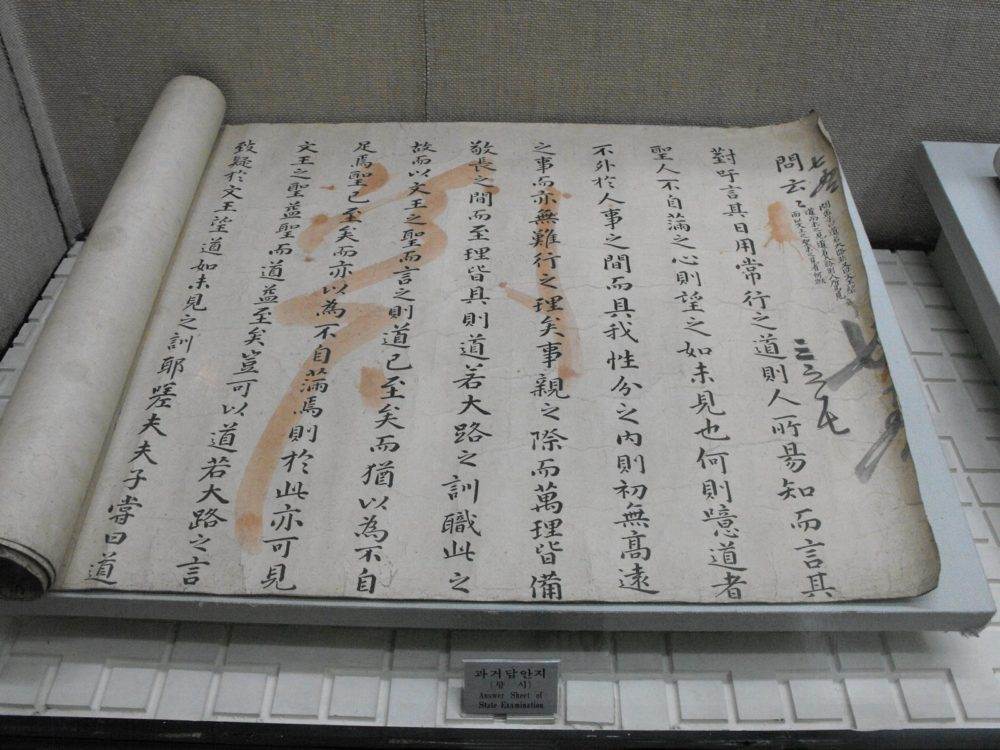 問云〻
三之七
對吁言其日用常行之道則人所易知而言其
聖人不自滿之心則望之如未見也何則噫道者
不外於人事之間而具我性分之內則初無高遠
之事而亦無難行之理矣事親之際而萬理皆備
敬長之間而至理皆具則道若大路之訓職此之
故而以文王之聖而言之則道已至矣而猶以為不自
足焉聖已至矣而亦以為不自滿焉則於此亦可見
文王之聖益聖而道益至矣豈可以道若大路之言
致疑於文王望道如未見之訓耶嗟夫夫子嘗曰道
과거답안지
(향 시)
Answer Sheet of
State Examination